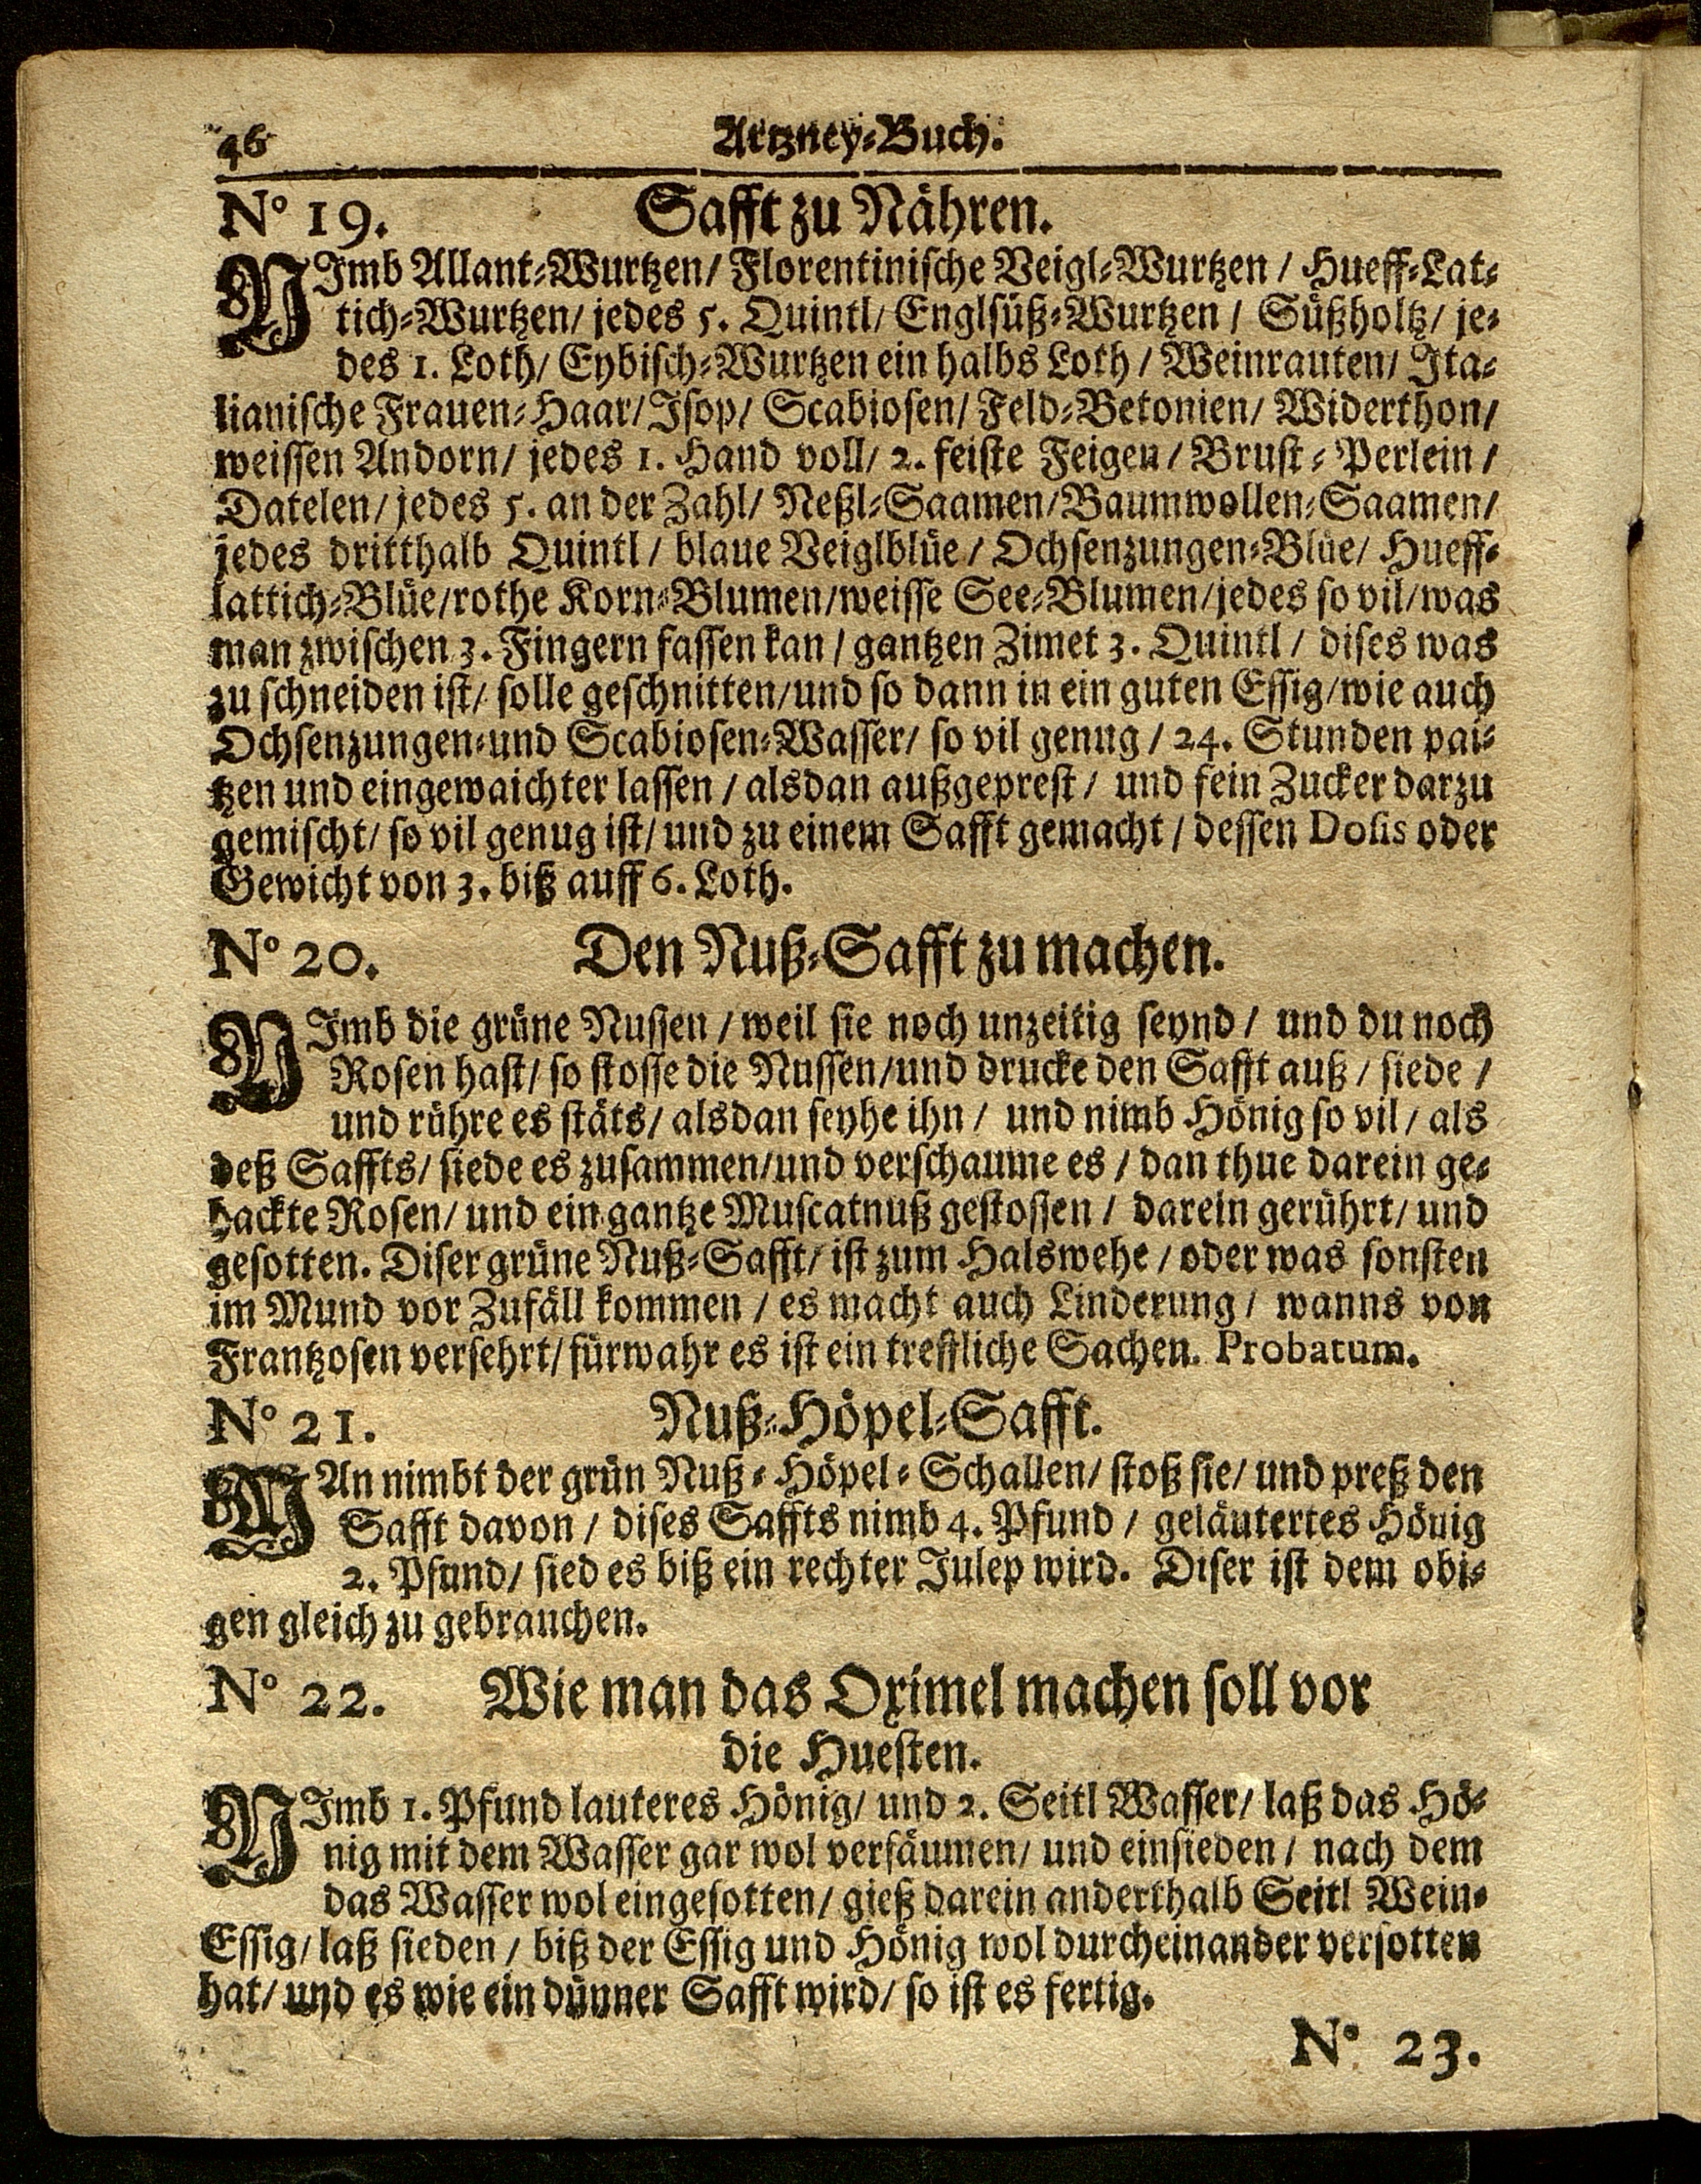 46 Artzney-Buch.
No 19. Safft zu Nähren.
NImb Allant-Wurtzen/ Florentinische Veigl-Wurtzen / Hueff-Lat-
tich-Wurtzen/ jedes 5. Quintl/ Englsüß-Wurtzen / Süßholtz/ je-
des 1. Loth/ Eybisch-Wurtzen ein halbs Loth / Weinrauten/ Ita-
lianische Frauen-Haar/ Isop/ Scabiosen/ Feld-Betonien/ Widerthon/
weissen Andorn/ jedes 1. Hand voll/ 2. feiste Feigen / Brust-Perlein /
Datelen/ jedes 5. an der Zahl/ Neßl-Saamen/Baumwollen-Saamen/
jedes dritthalb Quintl / blaue Veiglblüe / Ochsenzungen-Blüe/ Hueff-
lattich-Blüe/rothe Korn-Blumen/weisse See-Blumen/jedes so vil/was
man zwischen 3. Fingern fassen kan / gantzen Zimet 3. Quintl / dises was
zu schneiden ist/ solle geschnitten/und so dann in ein guten Essig/wie auch
Ochsenzungen-und Scabiosen-Wasser/ so vil genug / 24. Stunden pai-
tzen und eingewaichter lassen / alsdan außgeprest / und fein Zucker darzu
gemischt/ so vil genug ist/ und zu einem Safft gemacht / dessen Dosis oder
Gewicht von 3. biß auff 6. Loth.
No 20. Den Nuß-Safft zu machen.
NImb die grüne Nussen / weil sie noch unzeitig seynd / und du noch
Rosen hast/ so stosse die Nussen/und drucke den Safft auß / siede /
und rühre es stäts/ alsdan seyhe ihn / und nimb Hönig so vil / als
deß Saffts/ siede es zusammen/und verschaume es / dan thue darein ge-
hackte Rosen/ und ein gantze Muscatnuß gestossen / darein gerührt/ und
gesotten. Diser grüne Nuß-Safft/ ist zum Halswehe / oder was sonsten
im Mund vor Zufäll kommen / es macht auch Linderung / wanns von
Frantzosen versehrt/ fürwahr es ist ein treffliche Sachen. Probatum.
No 21. Nuß-Höpel-Safft.
MAn nimbt der grün Nuß-Höpel-Schallen/ stoß sie/ und preß den
Safft davon / dises Saffts nimb 4. Pfund / geläutertes Hönig
2. Pfund/ sied es biß ein rechter Julep wird. Diser ist dem obi-
gen gleich zu gebrauchen.
No 22. Wie man das Oximel machen soll vor
die Huesten.
NImb 1. Pfund lauteres Hönig/ und 2. Seitl Wasser/ laß das Hö-
nig mit dem Wasser gar wol verfäumen/ und einsieden / nach dem
das Wasser wol eingesotten/ gieß darein anderthalb Seitl Wein-
Essig/ laß sieden / biß der Essig und Hönig wol durcheinander versotten
hat/ und es wie ein dünner Safft wird/ so ist es fertig.
No 23.